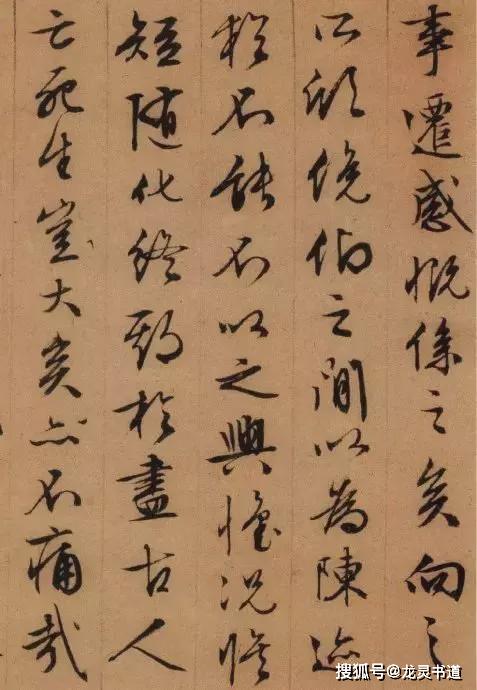 事遷感慨係之矣向之
所欣俛仰之間以為陳迹
猶不能不以之興懷況脩
短随化終期於盡古人
云死生豈大矣亦不痛哉
搜狐号@龙灵书道